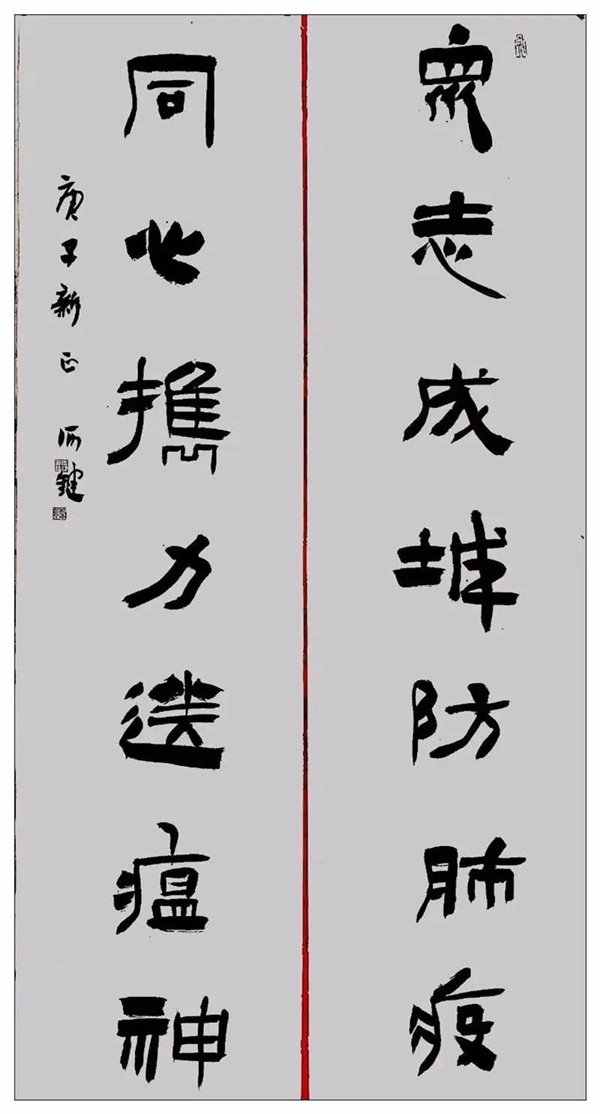 眾志成城防肺疫
同心攜力送瘟神
庚子新正